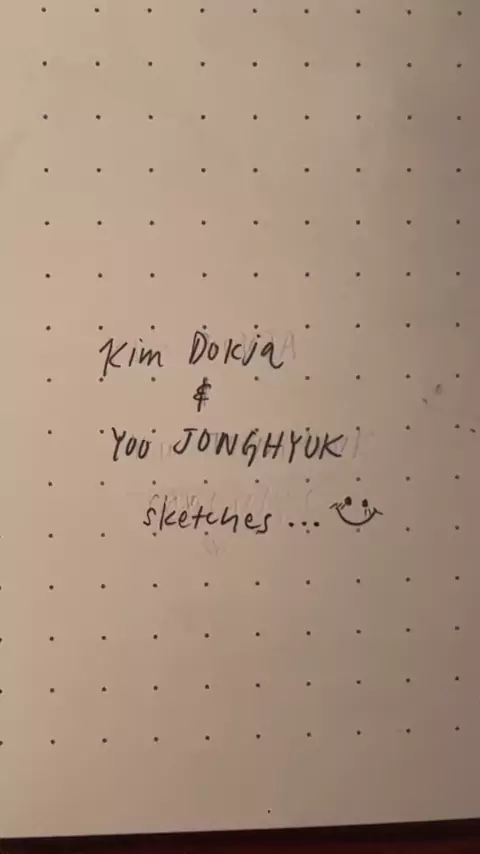 Kim Dokja
&
YOO JONGHYUK
sketches ...